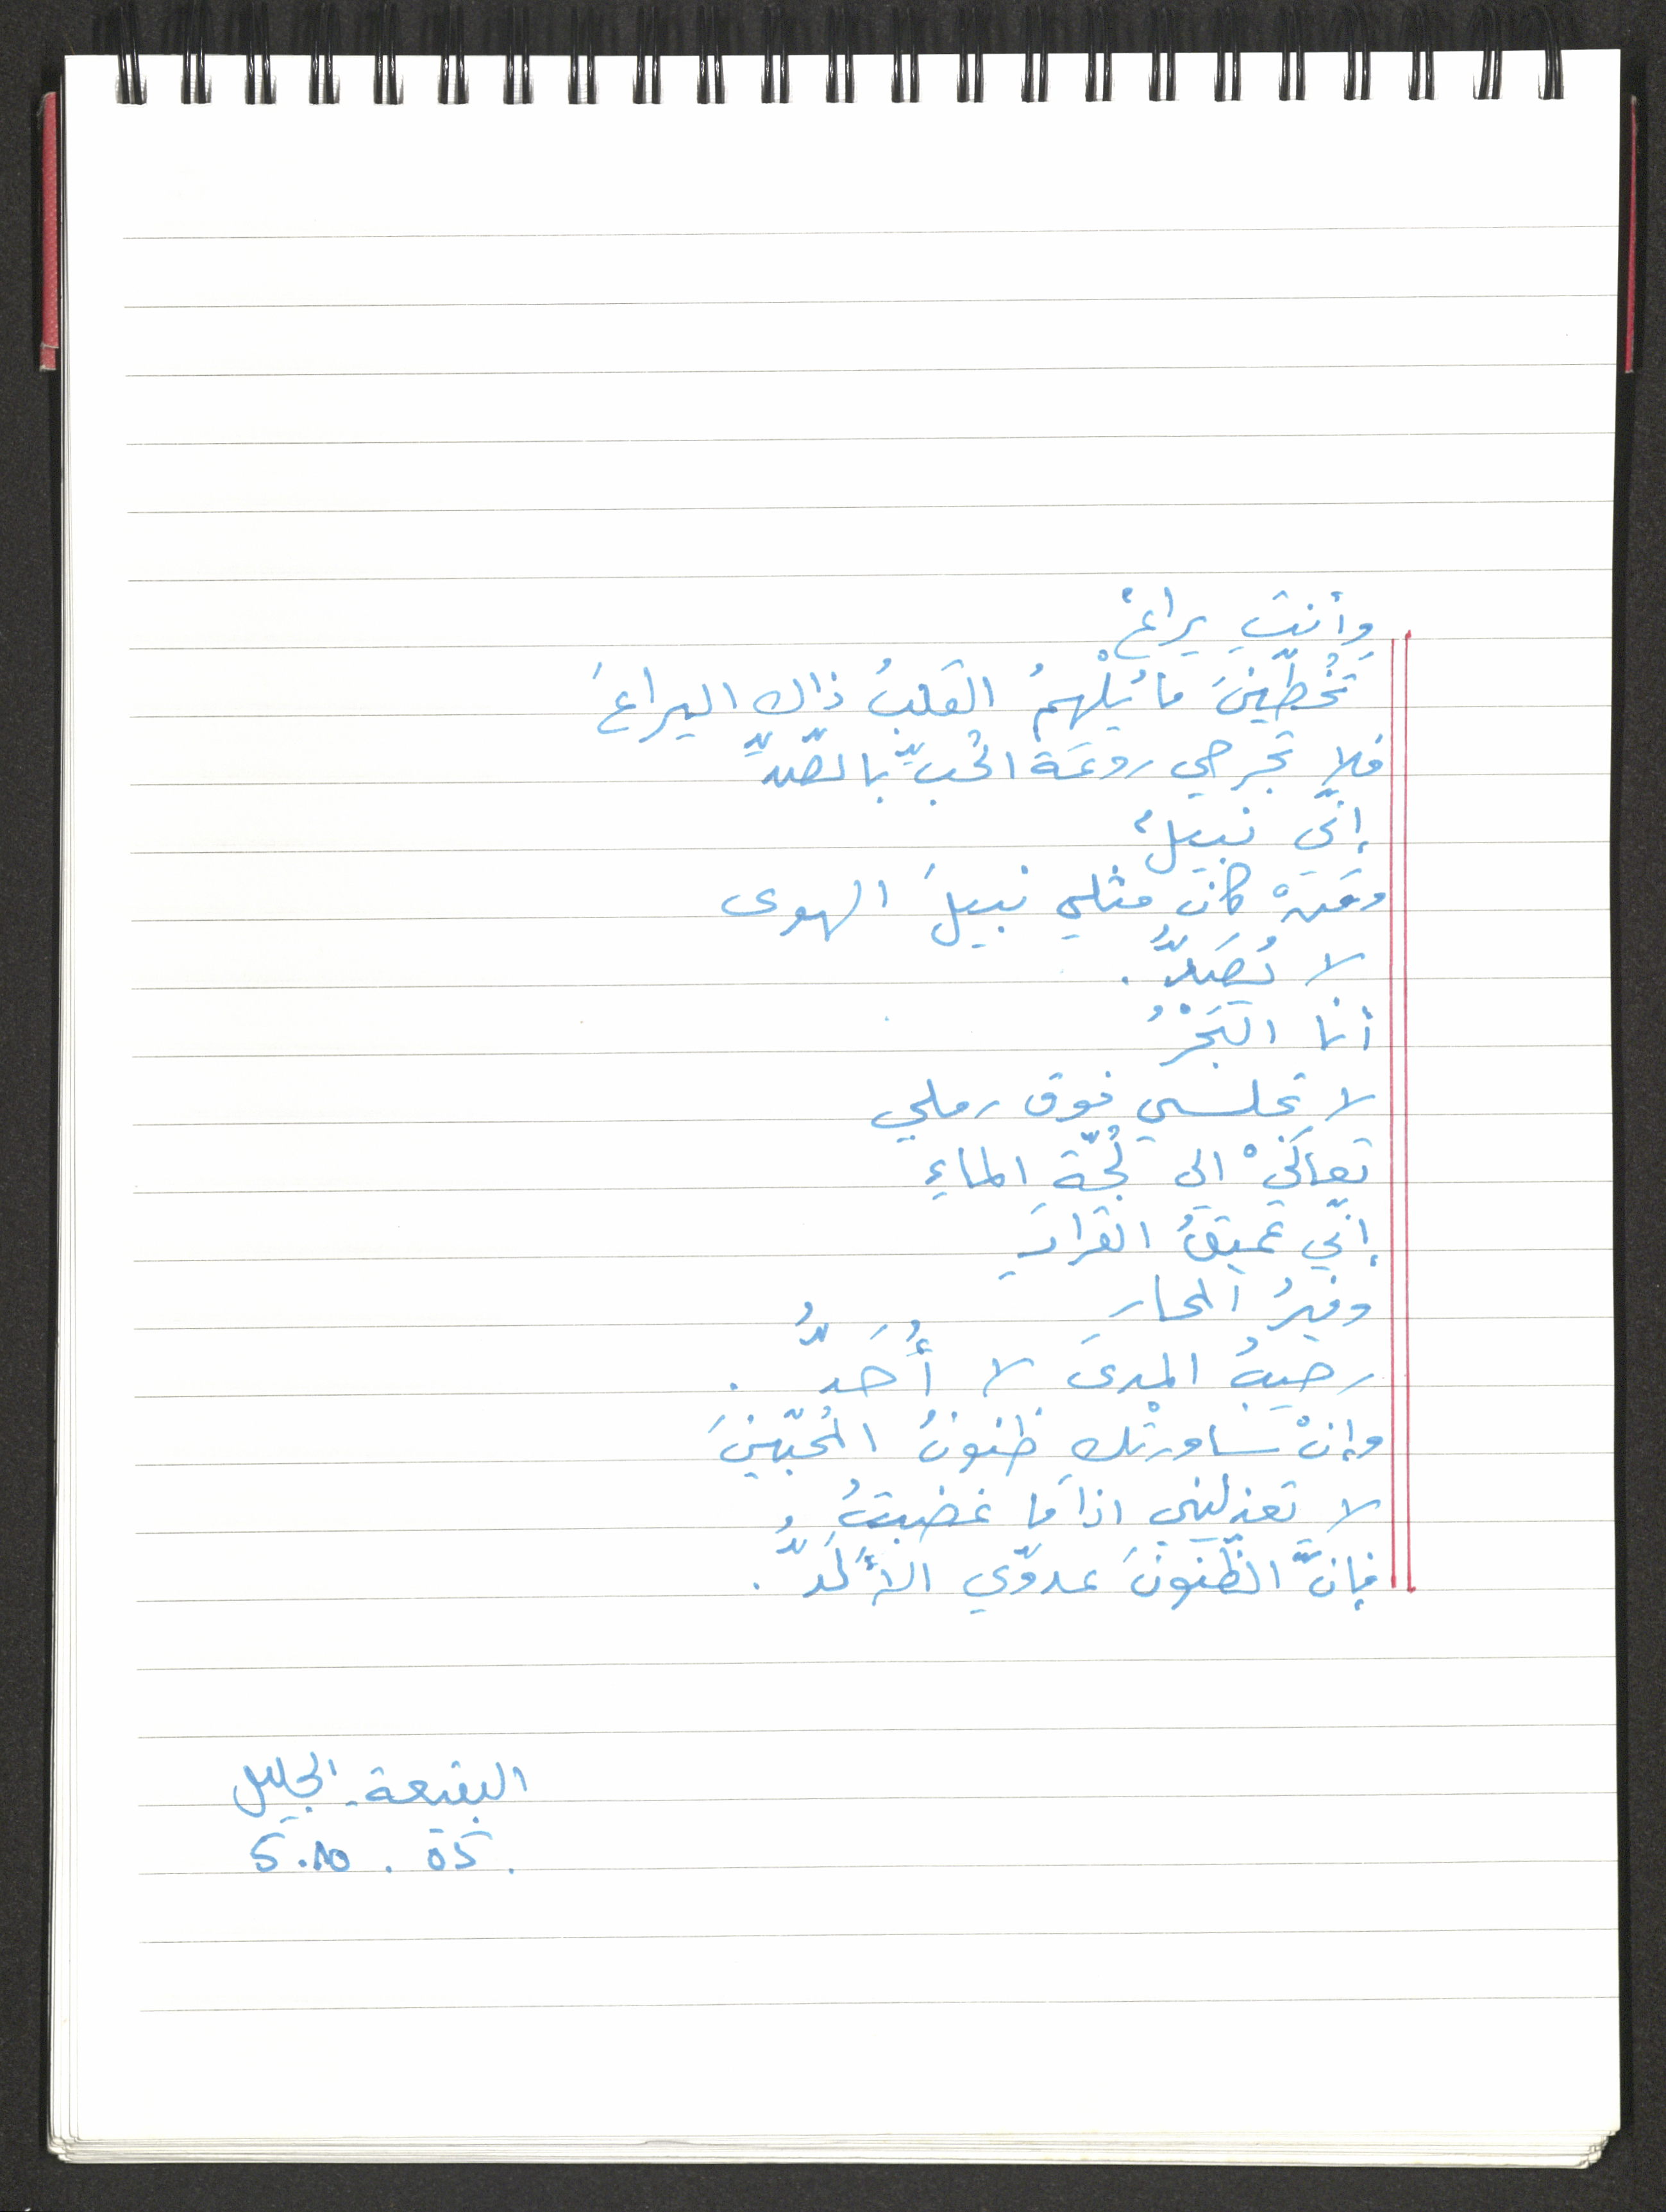 وأنتِ يراعٌ
تَخُطّينَ ما يُلْهِمُ القلبُ ذاك اليراعَ
فلا تجرحي روعَة الحُبِّ بالصّدِّ
إنّي نبيلٌ
ومَنْ كانَ مثلي نبيلَ الهوى
لا يُصَدُّ .
أنا البَحْرُ
لا تجلسي فوق رملي
تعالَيْ الى لُجّةِ الماءِ
إنّي عميقُ القرارِ
وفيرُ المحارِ
رحيبُ المدى لا أُحَدُّ .
وإنْ ساورتْك ظنونُ المُحبّينَ
لا تعذليني اذا ما غضبتُ
فإنَّ الظّنونَ عدوّي الأَلَدُّ .
البقيعة - الجليل